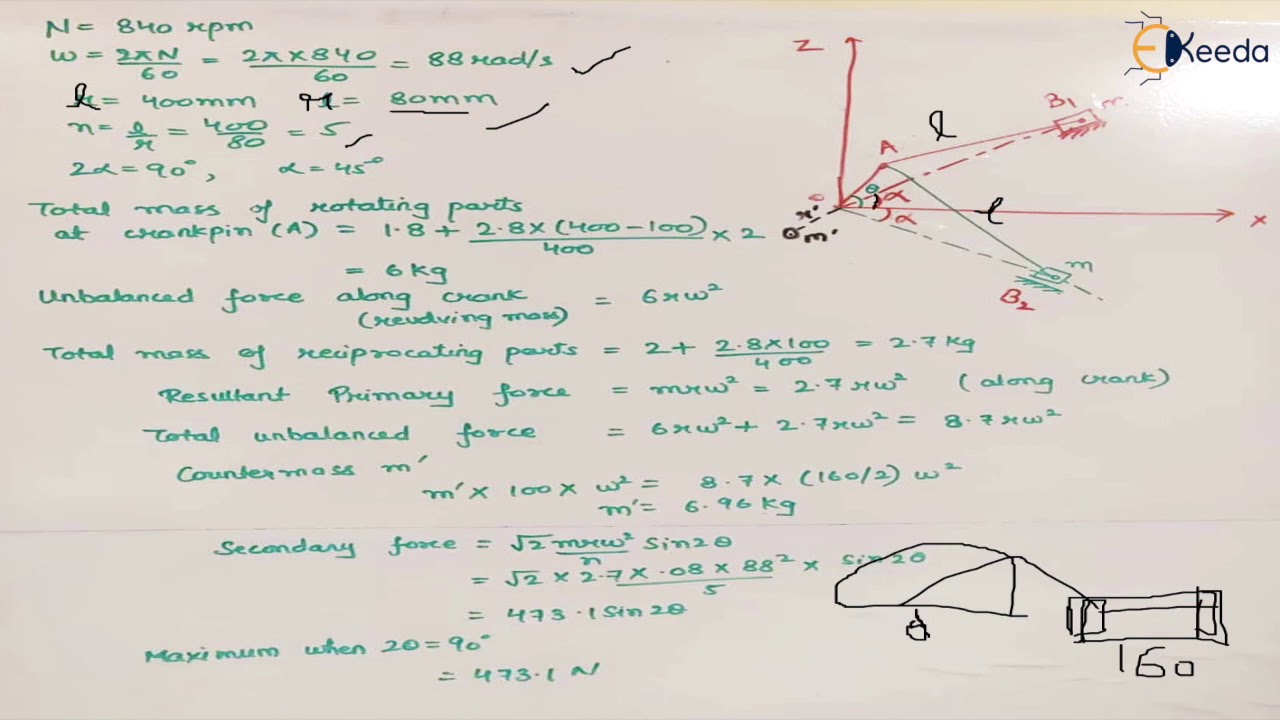 N = 840 rpm
ω = 2πN/60 = 2π×840/60 = 88 rad/s
l = 400mm r = 80mm
n = l/r = 400/80 = 5
2α = 90°, α = 45°
Total mass of rotating parts
at crankpin (A) = 1.8 + 2.8×(400-100)/400 × 2
= 6 kg
Unbalanced force along crank = 6rω²
(revolving mass)
Total mass of reciprocating parts = 2 + 2.8×100/400 = 2.7 kg
Resultant Primary force = mrω² = 2.7rω² (along crank)
Total unbalanced force = 6rω² + 2.7rω² = 8.7rω²
Countermass m'
m' × 100 × ω² = 8.7 × (160/2) ω²
m' = 6.96 kg
Secondary force = √2 mrω²/n Sin2θ
= √2 × 2.7 × .08 × 88²/5 × Sin2θ
= 473.1 Sin2θ
Maximum when 2θ = 90°
= 473.1 N
Keeda
Z
B₁ m
l
A
θ
α
α
l
X
r'
m'
m
B₂
160